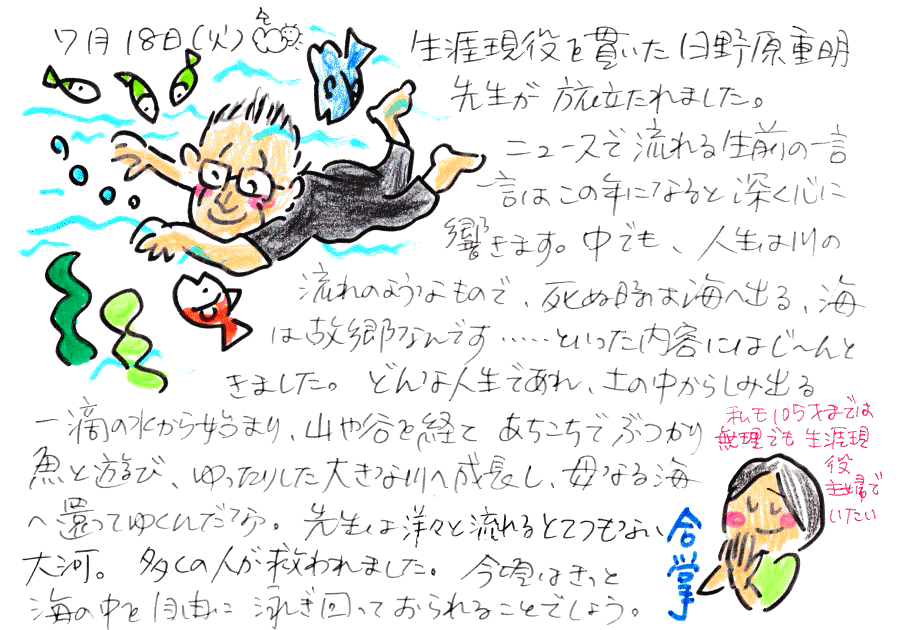 7月18日(火)
生涯現役を貫いた日野原重明
先生が旅立たれました。
ニュースで流れる生前の一
言一言はこの年になると深く心に
響きます。中でも、人生は川の
流れのようなもので、死ぬ時は海へ出る、海
は故郷なんです……といった内容にはじ〜んと
きました。どんな人生であれ、土の中からしみ出る
一滴の水から始まり、山や谷を経てあちこちでぶつかり
魚と遊び、ゆったりした大きな川へ成長し、母なる海
へ還ってゆくんだなぁ。先生は洋々と流れるとてつもない
大河。多くの人が救われました。今頃はきっと
海の中を自由に泳ぎ回っておられることでしょう。
私も105才までは
無理でも生涯現
役
主婦で
いたい
合掌